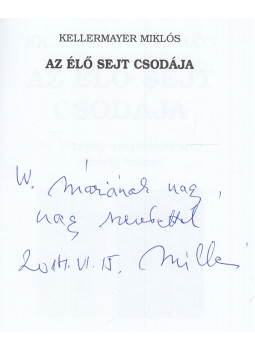 KELLERMAYER MIKLÓS
AZ ÉLŐ SEJT CSODÁJA
W. Máriának nagy,
nagy szeretettel
VI. 15.